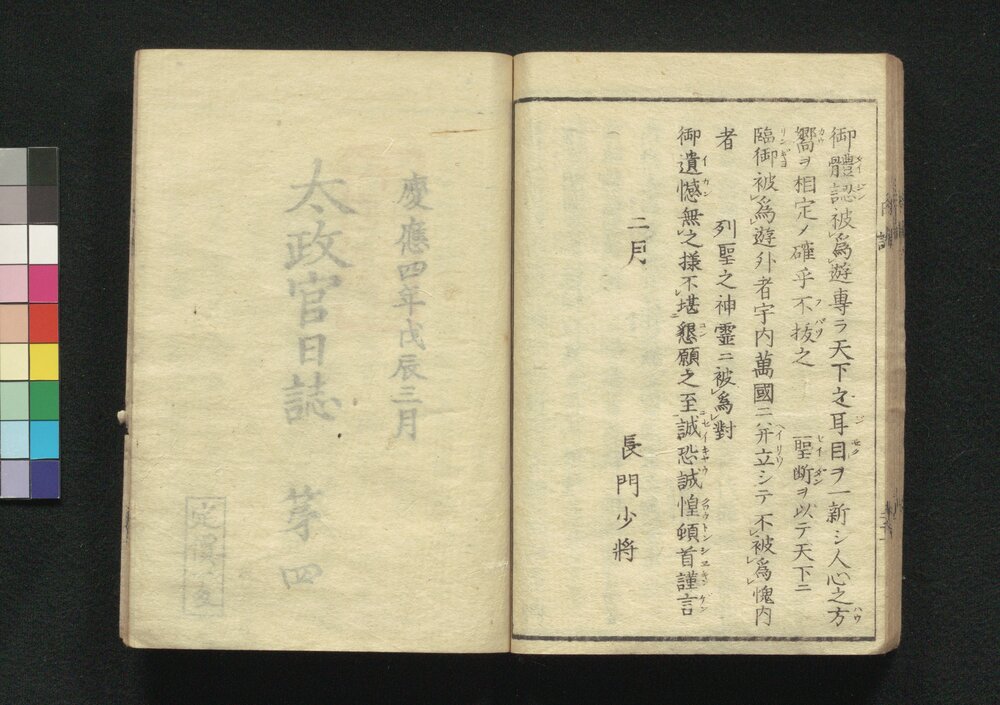 御體認被爲遊專ラ天下之耳目ヲ一新シ人心之方
嚮ヲ相定メ確乎不拔之　聖斷ヲ以テ天下ニ
臨御被爲遊外者宇内萬國ニ并立シテ不被爲愧内
者　列聖之神靈ニ被爲對
御遺憾無之樣不堪懇願之至誠恐誠惶頓首謹言
二月
長門少將
慶應四年戊辰三月
太政官日誌　第四